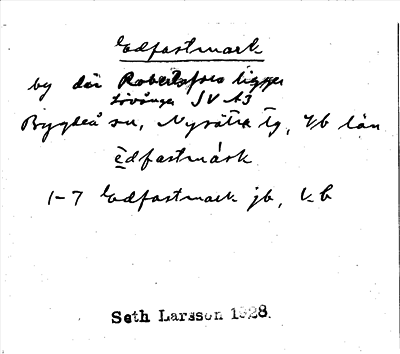 Edfastmark
by där Robertsfors ligger
Lövånger SV A3
Bygdeå sn, Nysätra tg, Vb län
èdfastmárk
1-7 Edfastmark jb, Vb
Seth Larsson 1928.